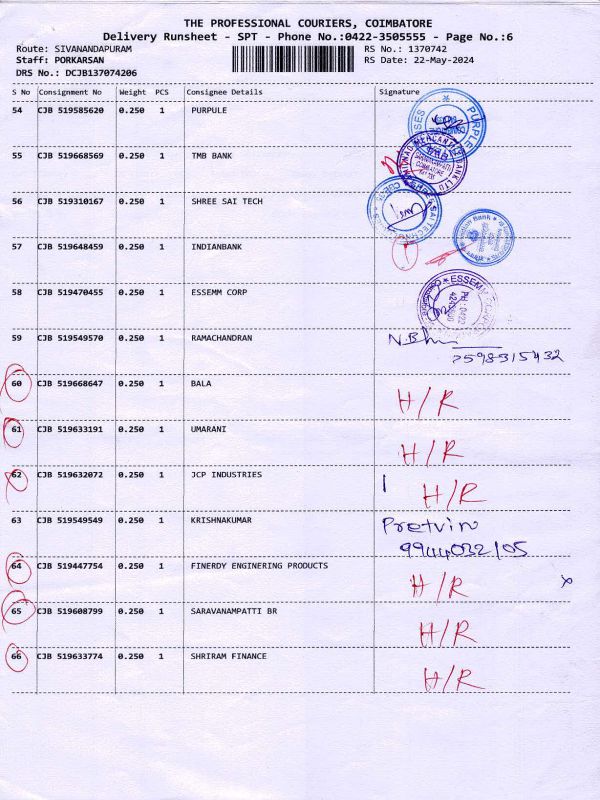 THE PROFESSIONAL COURIERS, COIMBATORE
Delivery Runsheet - SPT - Phone No.:0422-3505555 - Page No.:6
Route: SIVANANDAPURAM
RS No.: 1370742
Staff: PORKARSAN
RS Date: 22-May-2024
DRS No.: DCJB137074206
S No Consignment No Weight PCS Consignee Details Signature
54 CJB 519585620 0.250 1 PURPULE
PURPLE
55 CJB 519668569 0.250 1 TMB BANK
BANK LTD
56 CJB 519310167 0.250 1 SHREE SAI TECH
SAI TECH
57 CJB 519648459 0.250 1 INDIANBANK
Indian Bank
58 CJB 519470455 0.250 1 ESSEMM CORP
ESSEMM
PH : 0422
59 CJB 519549570 0.250 1 RAMACHANDRAN
60 CJB 519668647 0.250 1 BALA H/R
61 CJB 519633191 0.250 1 UMARANI H/R
62 CJB 519632072 0.250 1 JCP INDUSTRIES H/R
63 CJB 519549549 0.250 1 KRISHNAKUMAR Pretvin
9944032105
64 CJB 519447754 0.250 1 FINERDY ENGINERING PRODUCTS H/R
65 CJB 519608799 0.250 1 SARAVANAMPATTI BR H/R
66 CJB 519633774 0.250 1 SHRIRAM FINANCE H/R